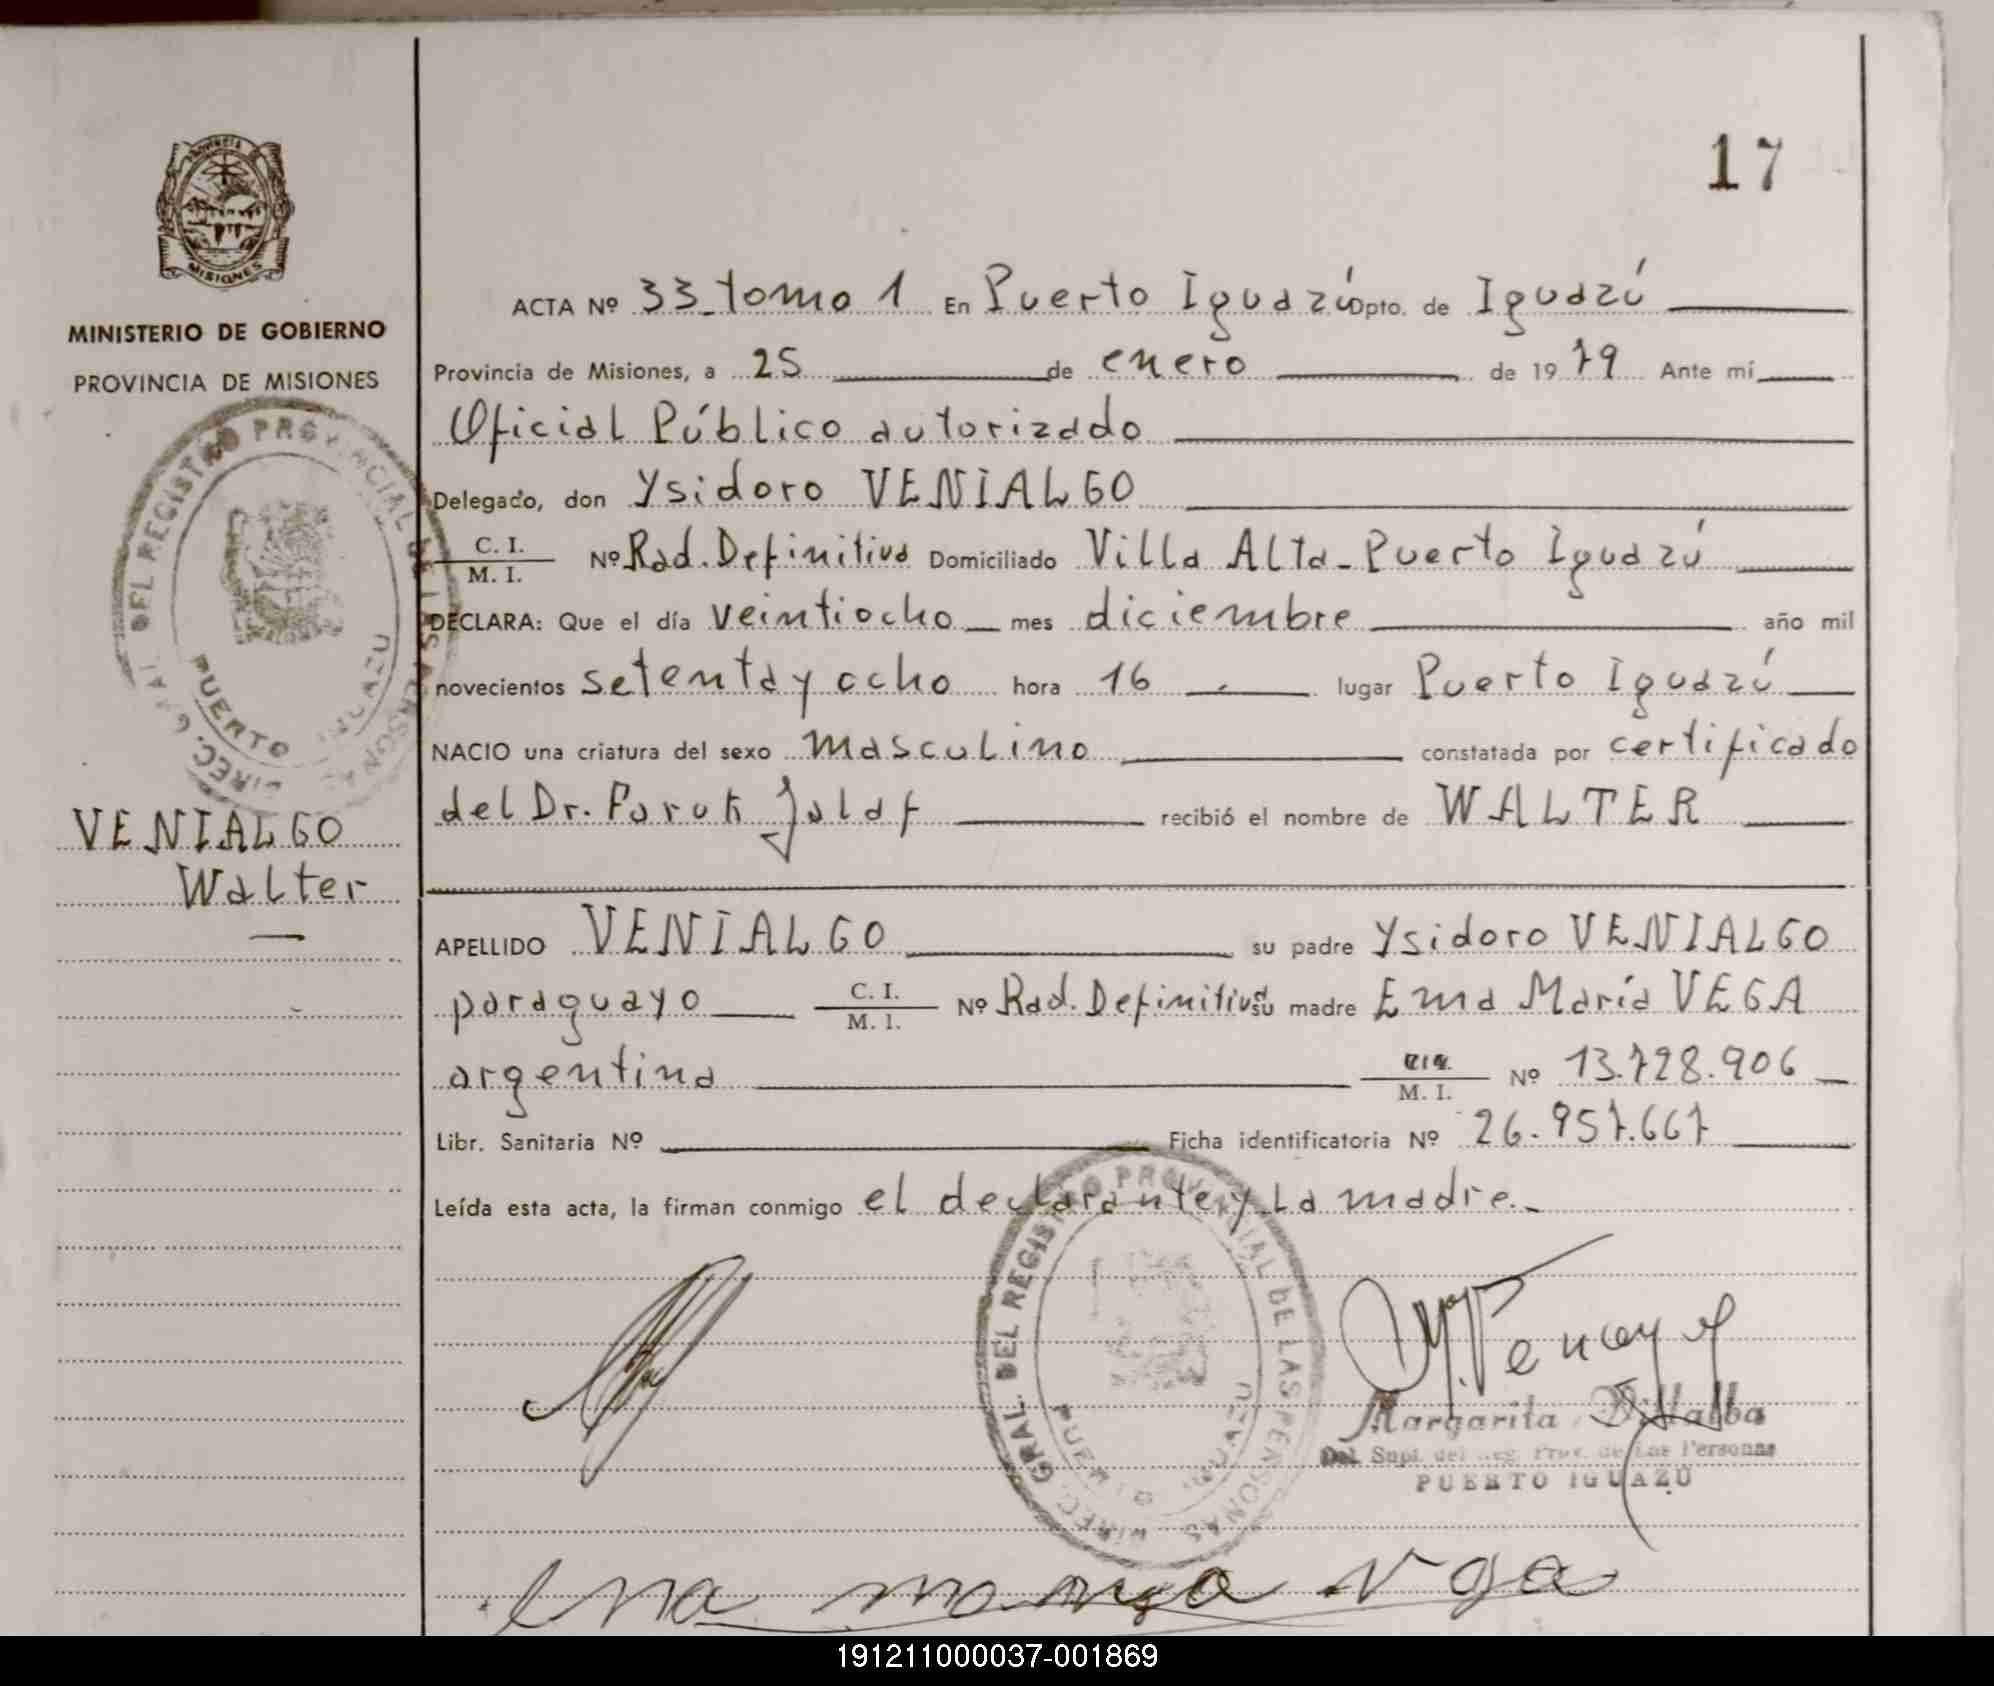 17
PROVINCIA DE
MISIONES
MINISTERIO DE GOBIERNO
PROVINCIA DE MISIONES
DIREC. GRAL. DEL REGISTRO PROVINCIAL DE LAS PERSONAS
PUERTO IGUAZU
VENIALGO
Walter
ACTA Nº 33_tomo 1 En Puerto Iguazú Dpto. de Iguazú
Provincia de Misiones, a 25 de enero de 1979 Ante mí
Oficial Público autorizado
Delegado, don Ysidoro VENIALGO
C. I.
M. I. Nº Rad. Definitiva Domiciliado Villa Alta_Puerto Iguazú
DECLARA: Que el día veintiocho mes diciembre año mil
novecientos setenta y ocho hora 16 lugar Puerto Iguazú
NACIO una criatura del sexo masculino constatada por certificado
del Dr. Faruk Jalaf recibió el nombre de WALTER
APELLIDO VENIALGO su padre Ysidoro VENIALGO
paraguayo C. I.
M. I. Nº Rad. Definitiva su madre Ema María VEGA
argentina M. I. Nº 13.728.906
Libr. Sanitaria Nº Ficha identificatoria Nº 26.957.667
Leída esta acta, la firman conmigo el declarante y La madre._
DIREC. GRAL. DEL REGISTRO PROVINCIAL DE LAS PERSONAS
PUERTO IGUAZU
Margarita Villalba
Del. Supl. del Reg. Prov. de Las Personas
PUERTO IGUAZÚ
191211000037-001869